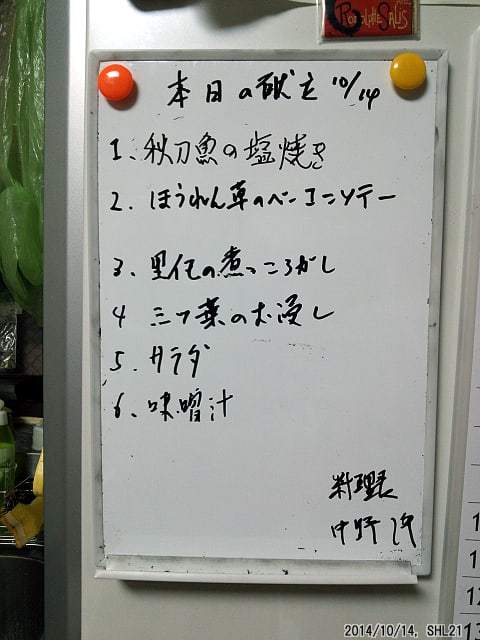 本日の献立 10/14
1、秋刀魚の塩焼き
2、ほうれん草のベーコンソテー
3、里芋の煮っころがし
4 三つ葉のお浸し
5、サラダ
6、味噌汁
料理長
中野
2014/10/14, SHL21